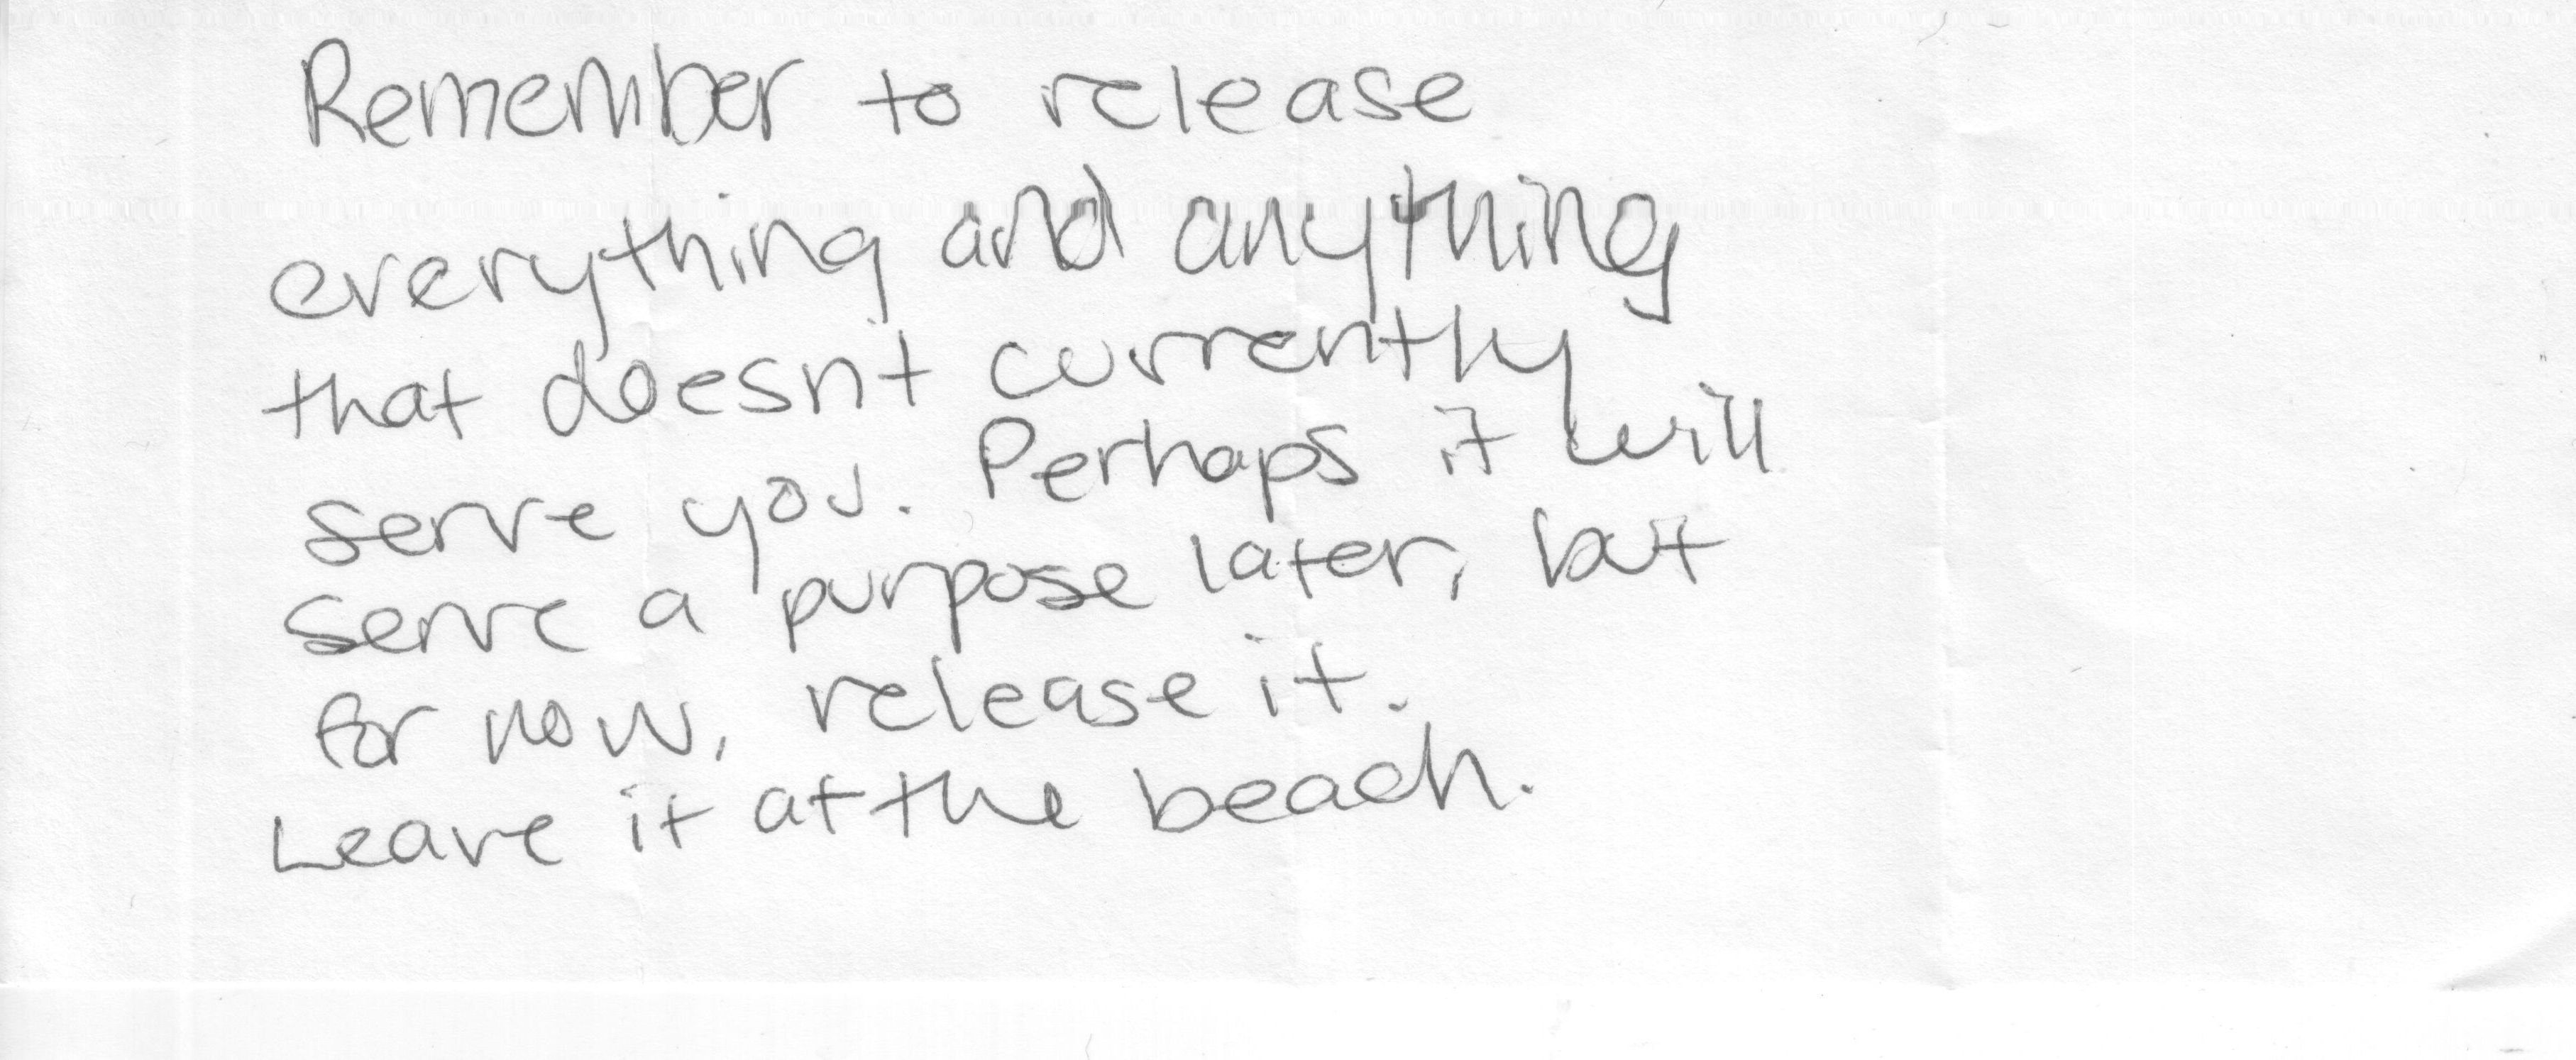 Remember to release
everything and anything
that doesn't currently
serve you. Perhaps it will
serve a purpose later, but
for now, release it.
Leave it at the beach.